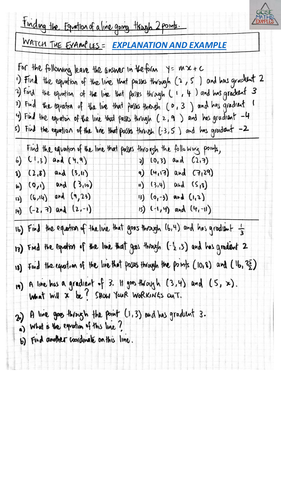 Finding the Equation of a line going through 2 points.
GCSE
MATHS
WATCH THE EXAMPLES = EXPLANATION AND EXAMPLE
For the following leave the answer in the form y = mx + c
1) Find the equation of the line that passes through (2, 5) and has gradient 2
2) Find the equation of the line that passes through (1, 4) and has gradient 3
3) Find the equation of the line that passes through (0, 3) and has gradient 1
4) Find the equation of the line that passes through (2, 9) and has gradient -4
5) Find the equation of the line that passes through (-3, 5) and has gradient -2
Find the equation of the line that passes through the following points,
6) (1,3) and (4,9) 7) (0,3) and (2,7)
8) (2,8) and (3,11) 9) (4,17) and (7,29)
10) (0,1) and (3,10) 11) (3,4) and (5,8)
12) (6,16) and (9,25) 13) (0,-5) and (1,2)
14) (-2,7) and (2,-1) 15) (-1,4) and (4,-11)
16) Find the equation of the line that goes through (6,4) and has gradient 1/3
17) Find the equation of the line that goes through (-½, 3) and has gradient 2
18) Find the equation of the line that passes through the points (10,8) and
19) A line has a gradient of 3. It goes through (3,4) and (5, x).
What will x be? SHOW YOUR WORKINGS OUT.
20) A line goes through the point (1,3) and has gradient 3.
a) What is the equation of this line?
b) Find another coordinate on this line.